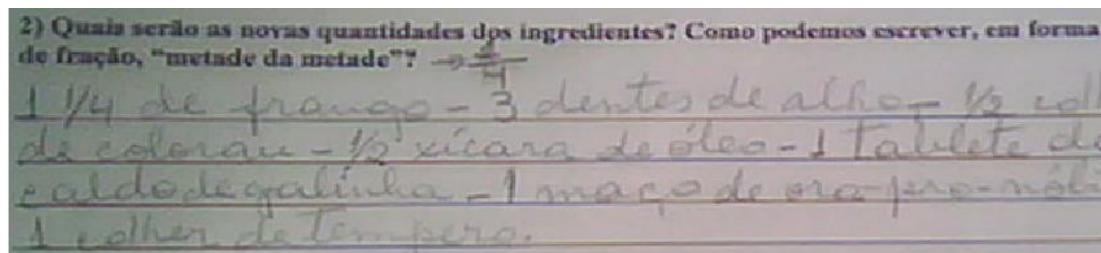 2) Quais serão as novas quantidades dos ingredientes? Como podemos escrever, em forma
de fração, “metade da metade”? → 1/4
1 1/4 de frango - 3 dentes de alho - 1/2 colh
de colorau - 1/2 xícara de óleo - 1 tablete de
caldo de galinha - 1 maço de ora-pro-nóbi
1 colher de tempero.